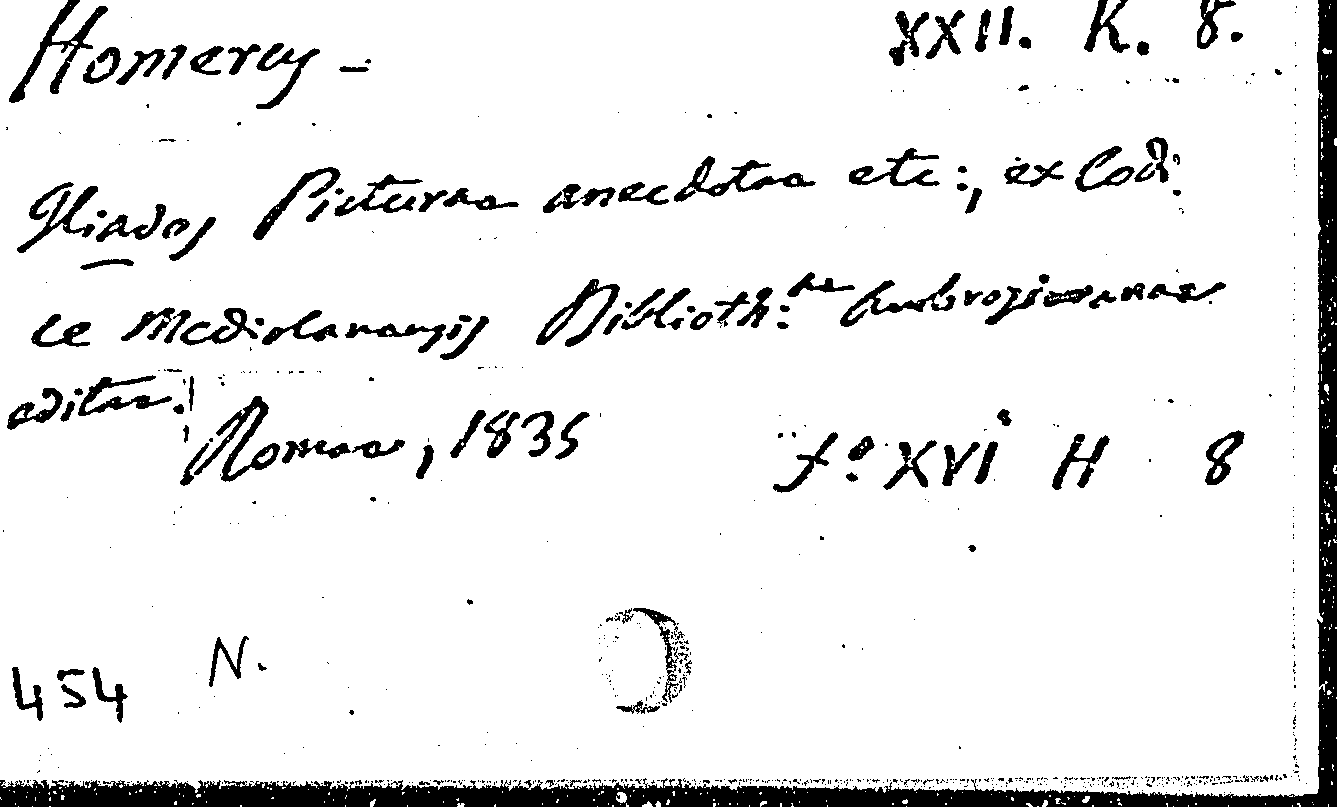 Homerus - XXII. K. 8.
Iliados Picturae anecdotae etc:, ex Codi:
ce Mediolanensis Biblioth:ae Ambrosianae
editae. Romae, 1835 fº XVI H 8
454 N.